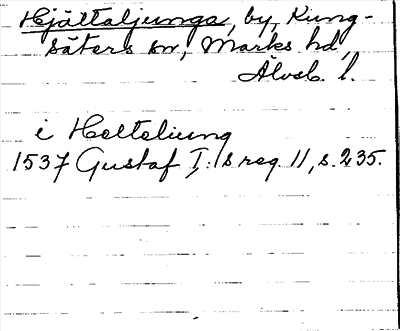 Hjälteljunga, by, Kung-
säters sn, Marks hd,
Älvsb. l.
i Helteliung
1537 Gustaf I:s reg 11, s. 235.